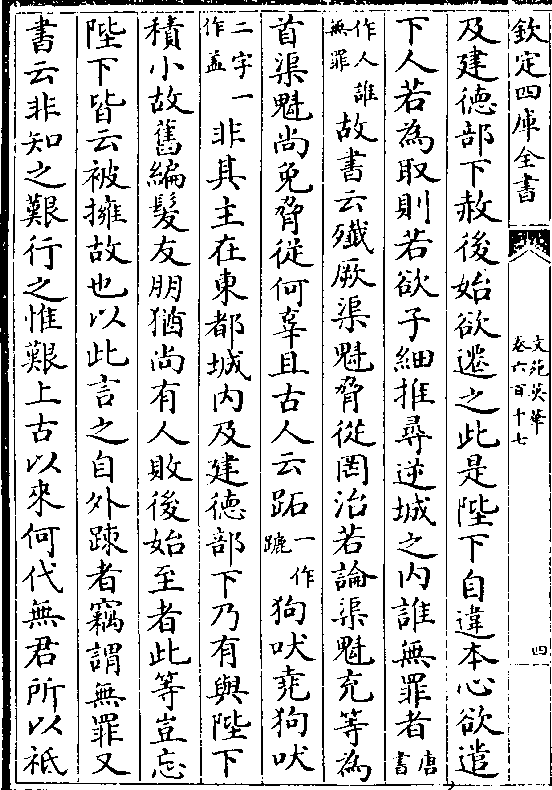 欽定四庫全書
文苑英華
卷六百十七
四
及建德部下赦後始欲遷之此是陛下自違本心欲遣
下人若為取則若欲子細推尋逆城之内誰無罪者唐書
作人誰無罪故書云殲厥渠魁脅從罔治若論渠魁充等為
首渠魁尚免脅從何辜且古人云跖一作蹠狗吠堯狗吠
二字一作蓋非其主在東都城内及建德部下乃有與陛下
積小故舊編髮友朋猶尚有人敗後始至者此等豈忘
陛下皆云被擁故也以此言之自外踈者竊謂無罪又
書云非知之艱行之惟艱上古以來何代無君所以祗